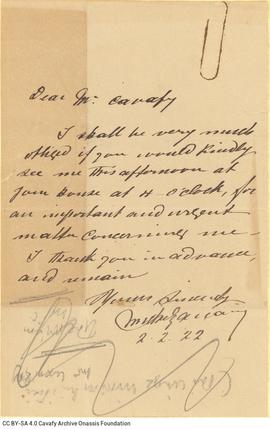 Dear Mr. Cavafy
I shall be very much
obliged if you would kindly
see me this afternoon at
your House at 4 o'clock, for
an important and urgent
matter concerning me –
I thank you in advance,
and remain
Yours Sincerely
2.2.22
CC BY-SA 4.0 Cavafy Archive Onassis Foundation